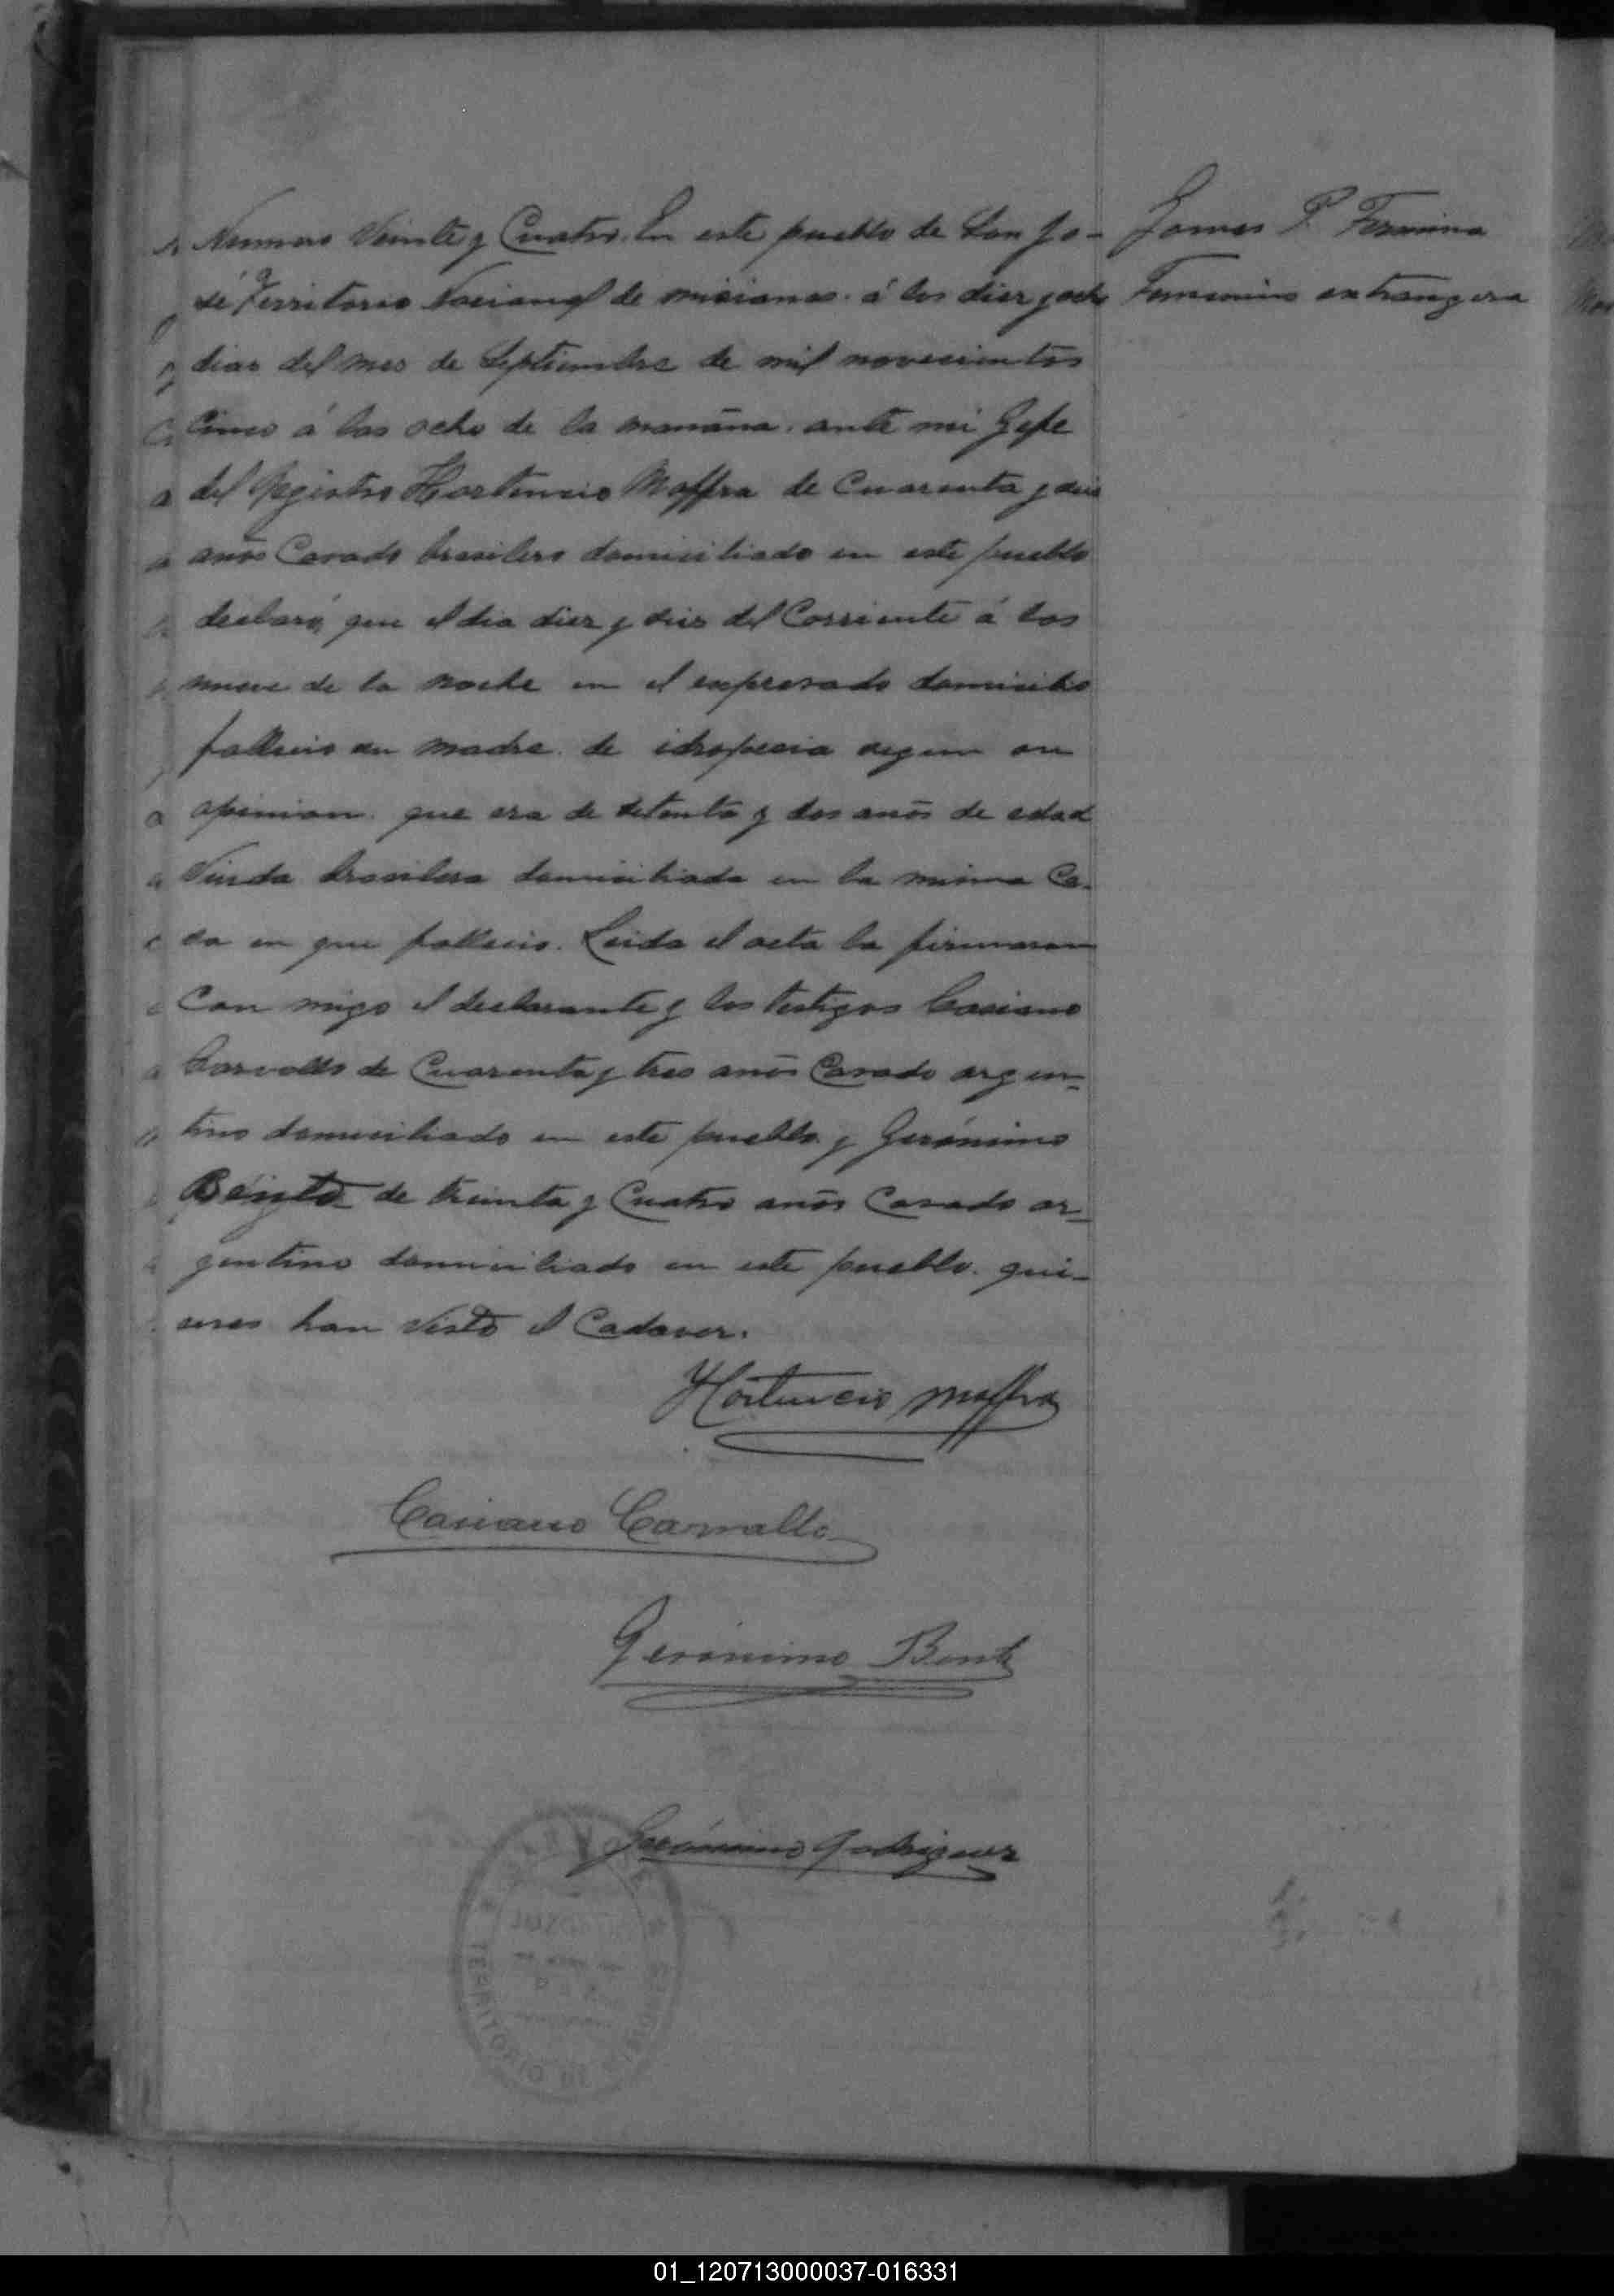 Numero Veinte y Cuatro. En este pueblo de San Jo-
sé Territorio Nacional de misiones. á los diez y ocho
dias del mes de Septiembre de mil novecientos
Cinco á las ocho de la mañana. ante mi Gefe
del Registro Hortencio Maffra de Cuarenta y seis
años Casado brasilero domiciliado en este pueblo
declaró, que el dia diez y seis del Corriente á las
nueve de la noche en el expresado domicilio
fallecio su madre. de idropecia segun su
opinion. que era de setenta y dos años de edad
Viuda brasilera domiciliada en la misma Ca-
sa en que fallecio. Leida el acta la firmaron
Con migo el declarante y los testigos Casiano
Carvallo de Cuarenta y tres años Casado argen-
tino domiciliado en este pueblo. y Gerónimo
Bento de treinta y Cuatro años Casado ar-
gentino domiciliado en este pueblo. qui-
enes han visto el Cadaver.
Hortencio Maffra
Casiano Carvallo
Gerónimo Bento
Gerónimo Rodriguez
Gomes P. Fermina
Femenino extrangera
TERRITORIO DE
01_120713000037-016331